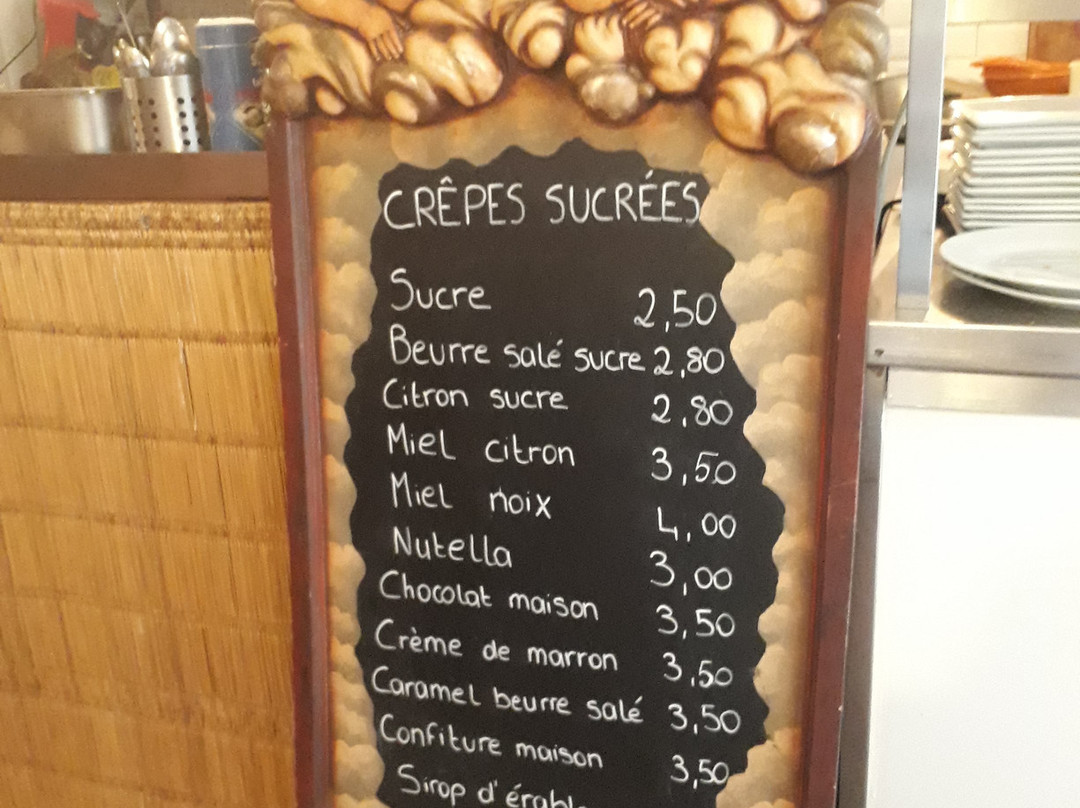 CRÊPES SUCRÉES
Sucre 2,50
Beurre salé sucre 2,80
Citron sucre 2,80
Miel citron 3,50
Miel noix 4,00
Nutella 3,00
Chocolat maison 3,50
Crème de marron 3,50
Caramel beurre salé 3,50
Confiture maison 3,50
Sirop d'